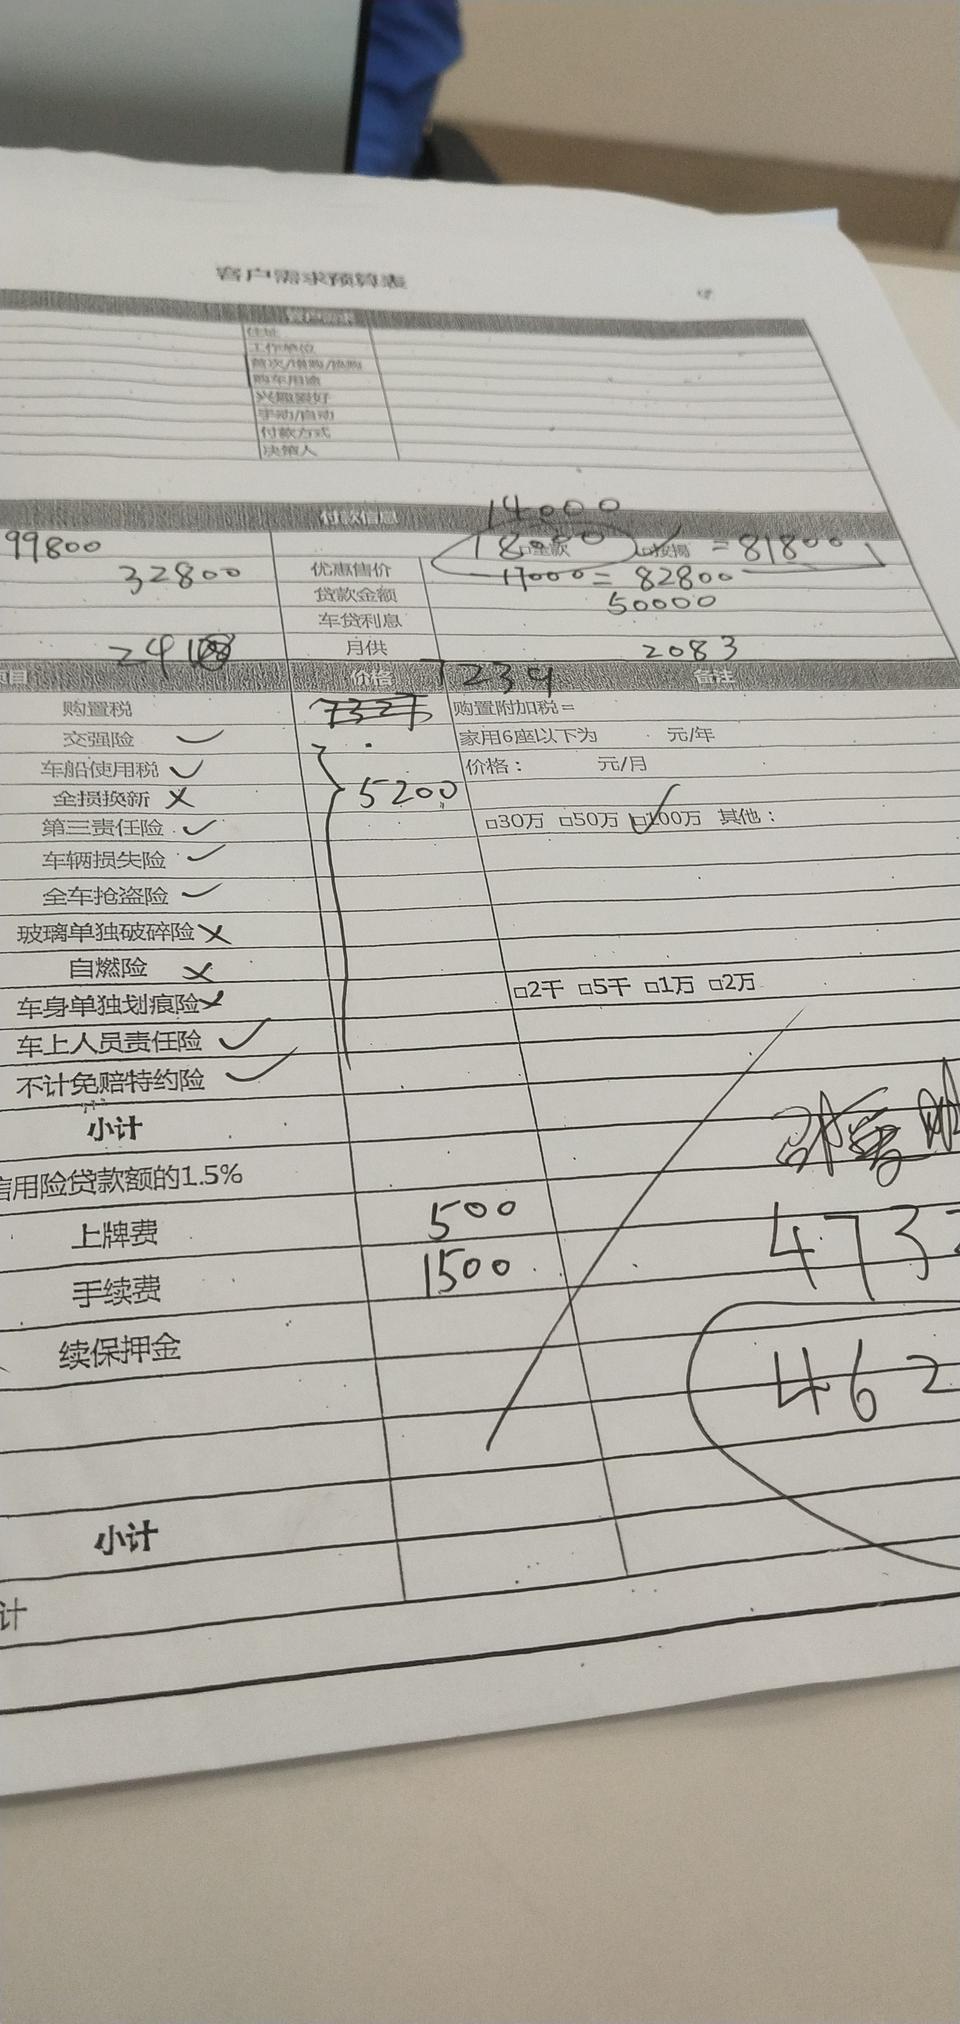 客户需求预算表
客户需求
住址
工作单位
首次/增购/换购
购车用途
兴趣爱好
手动/自动
付款方式
决策人
付款信息 14000
99800 18000 □全款 □按揭 = 81800
32800 优惠售价 -17000= 82800
贷款金额 50000
车贷利息
月供 2083
项目 价格 7239 备注
购置税 购置附加税=
交强险 家用6座以下为 元/年
车船使用税 价格: 元/月
全损换新 5200
第三责任险 □30万 □50万 □100万 其他:
车辆损失险
全车抢盗险
玻璃单独破碎险
自燃险
车身单独划痕险 □2千 □5千 □1万 □2万
车上人员责任险
不计免赔特约险
小计
信用险贷款额的1.5%
上牌费 500
手续费 1500 473
续保押金 462
小计
计